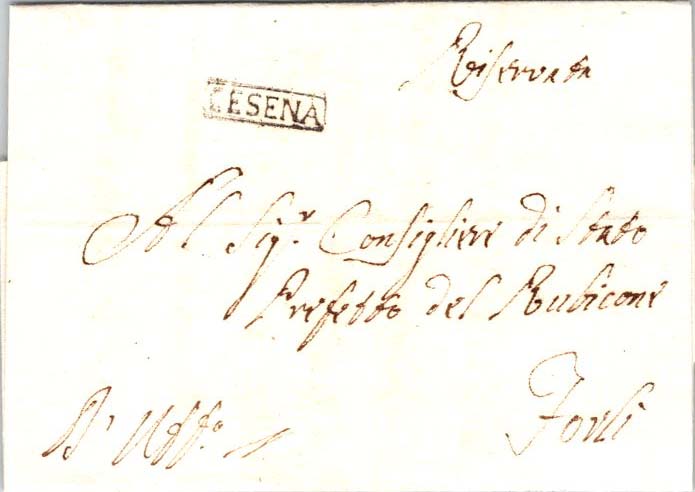 Riservata
CESENA
Al Sigr. Consigliere di Stato
Prefetto del Rubicone
Forlì
D'Uffo.